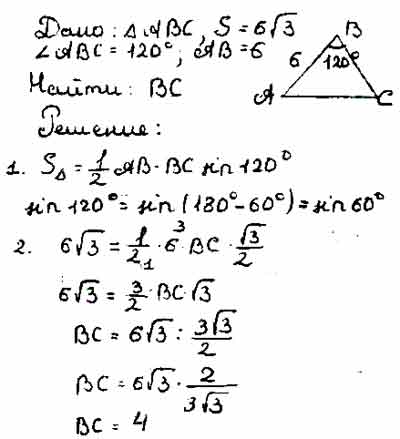 Дано: △ABC, S = 6√3
∠ABC = 120°, AB = 6
Найти: BC
Решение:
1. S△ = 1/2 AB · BC sin 120°
sin 120° = sin (180° - 60°) = sin 60°
2. 6√3 = 1/2 · 6 · BC · √3/2
1 3
6√3 = 3/2 · BC · √3
BC = 6√3 : 3√3/2
BC = 6√3 · 2/3√3
BC = 4
B
6 120°
A C